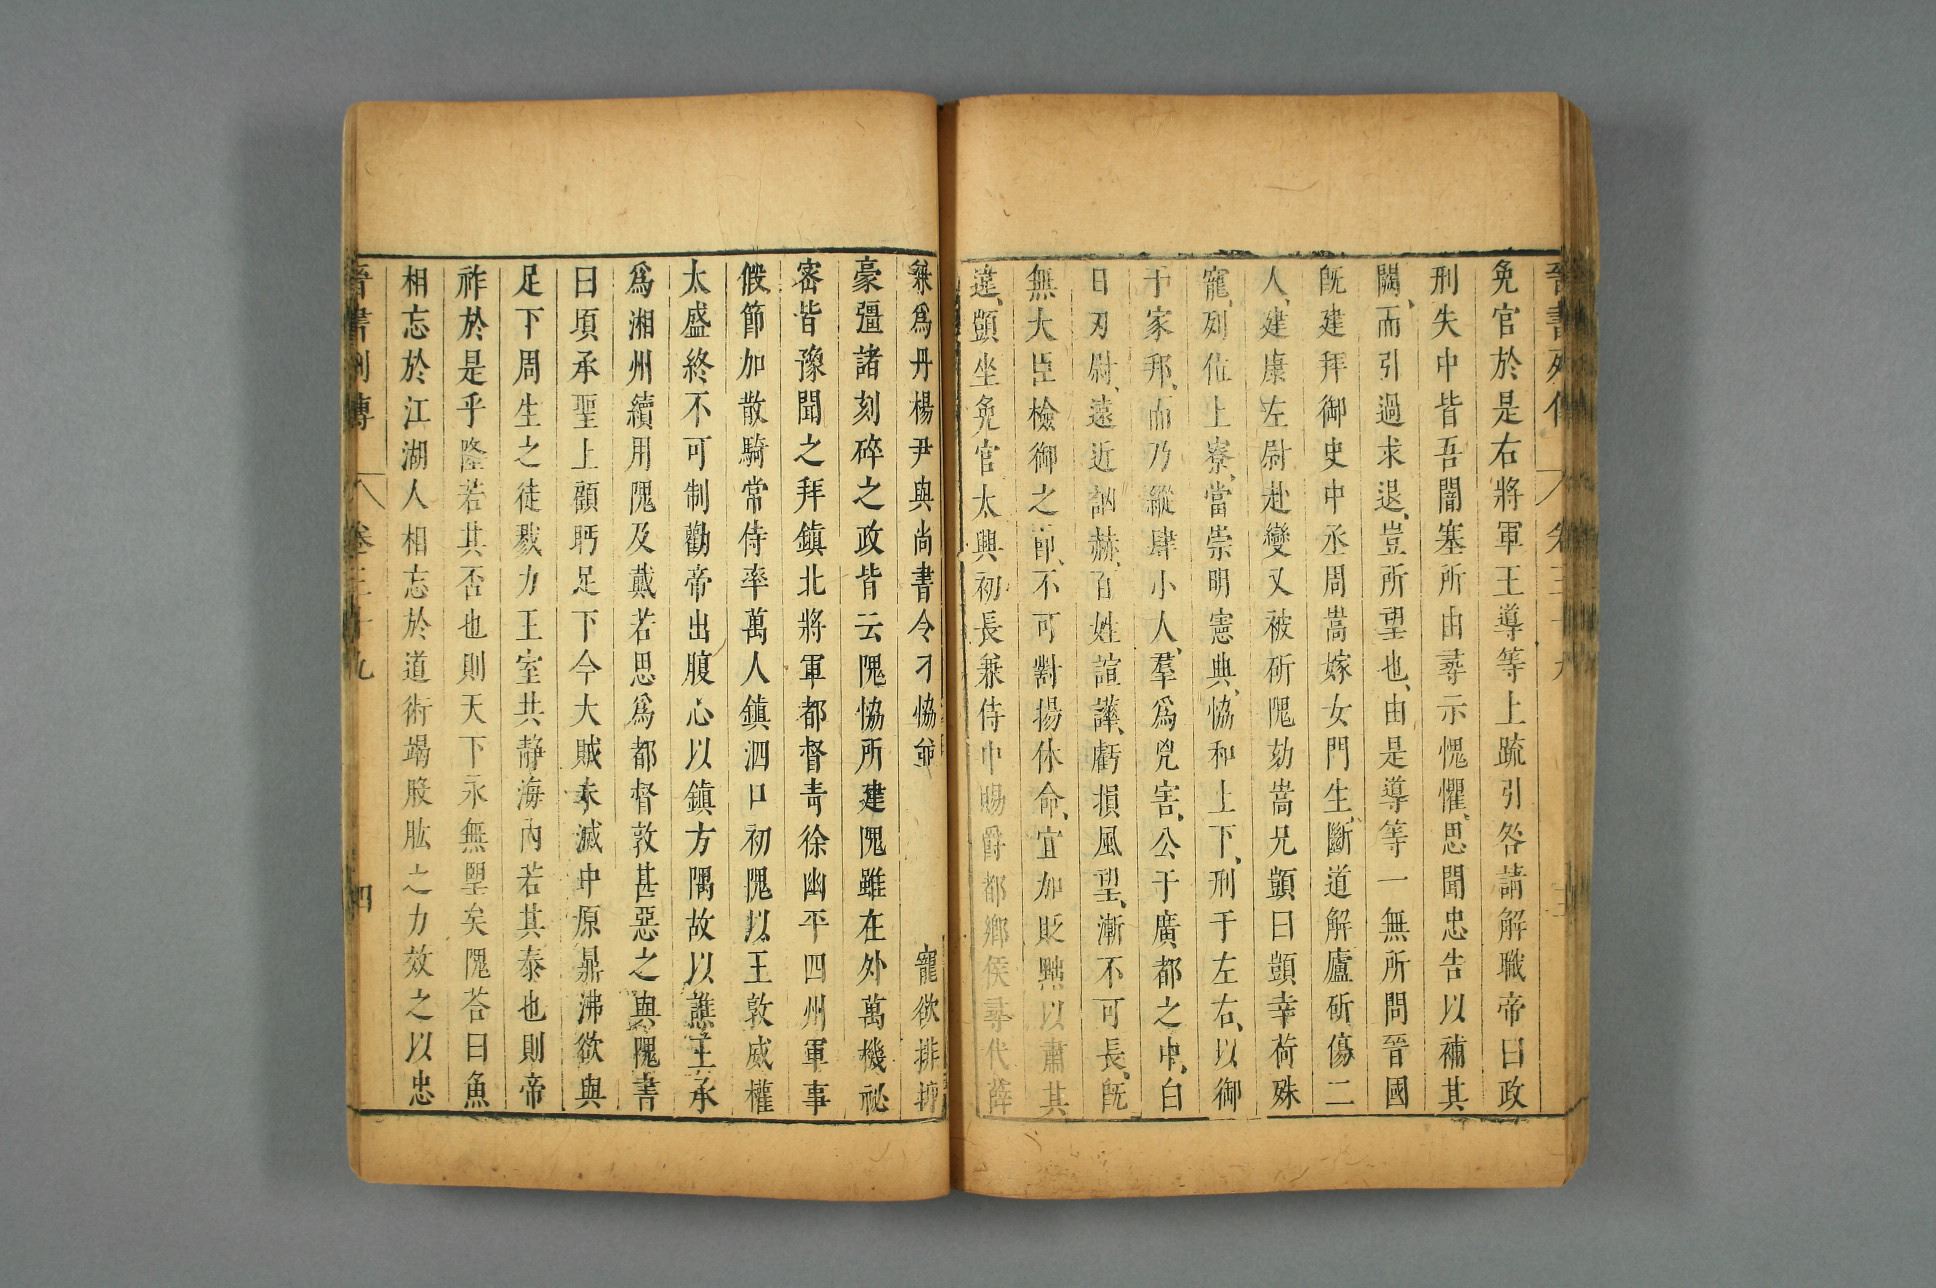 免官於是右將軍王導等上疏引咎請解職帝曰政
刑失中皆吾闇塞所由尋示愧懼思聞忠告以補其
闕、而引過求退、豈所望也、由是導等一無所問晉國
旣建拜御史中丞周嵩嫁女門生斷道解廬斫傷二
人、建康左尉赴變又被斫隗劾嵩兄顗曰顗幸荷殊
寵、列位上寮、當崇明憲典、恊和上下、刑于左右、以御
于家邦、而乃縱肆小人、羣爲兇害、公于廣都之中、白
日刃尉、遠近訩赫、百姓諠譁、虧損風望、漸不可長、旣
無大臣檢御之節、不可對揚休命、宜加貶黜以肅其
違、顗坐免官太興初長兼侍中賜爵都鄉侯尋代薛
兼爲丹楊尹與尚書令刁恊並 寵欲排擠
豪彊諸刻碎之政皆云隗恊所建隗雖在外萬機祕
密皆豫聞之拜鎮北將軍都督靑徐幽平四州軍事
假節加散騎常侍率萬人鎮泗口初隗以王敦威權
太盛終不可制勸帝出腹心以鎮方隅故以譙王承
爲湘州續用隗及戴若思爲都督敦甚惡之與隗書
曰頃承聖上顧眄足下今大賊未滅中原鼎沸欲與
足下周生之徒戮力王室共静海內若其泰也則帝
祚於是乎隆若其否也則天下永無望矣隗荅曰魚
相忘於江湖人相忘於道術竭股肱之力效之以忠
晉書列傳 卷三十九 四